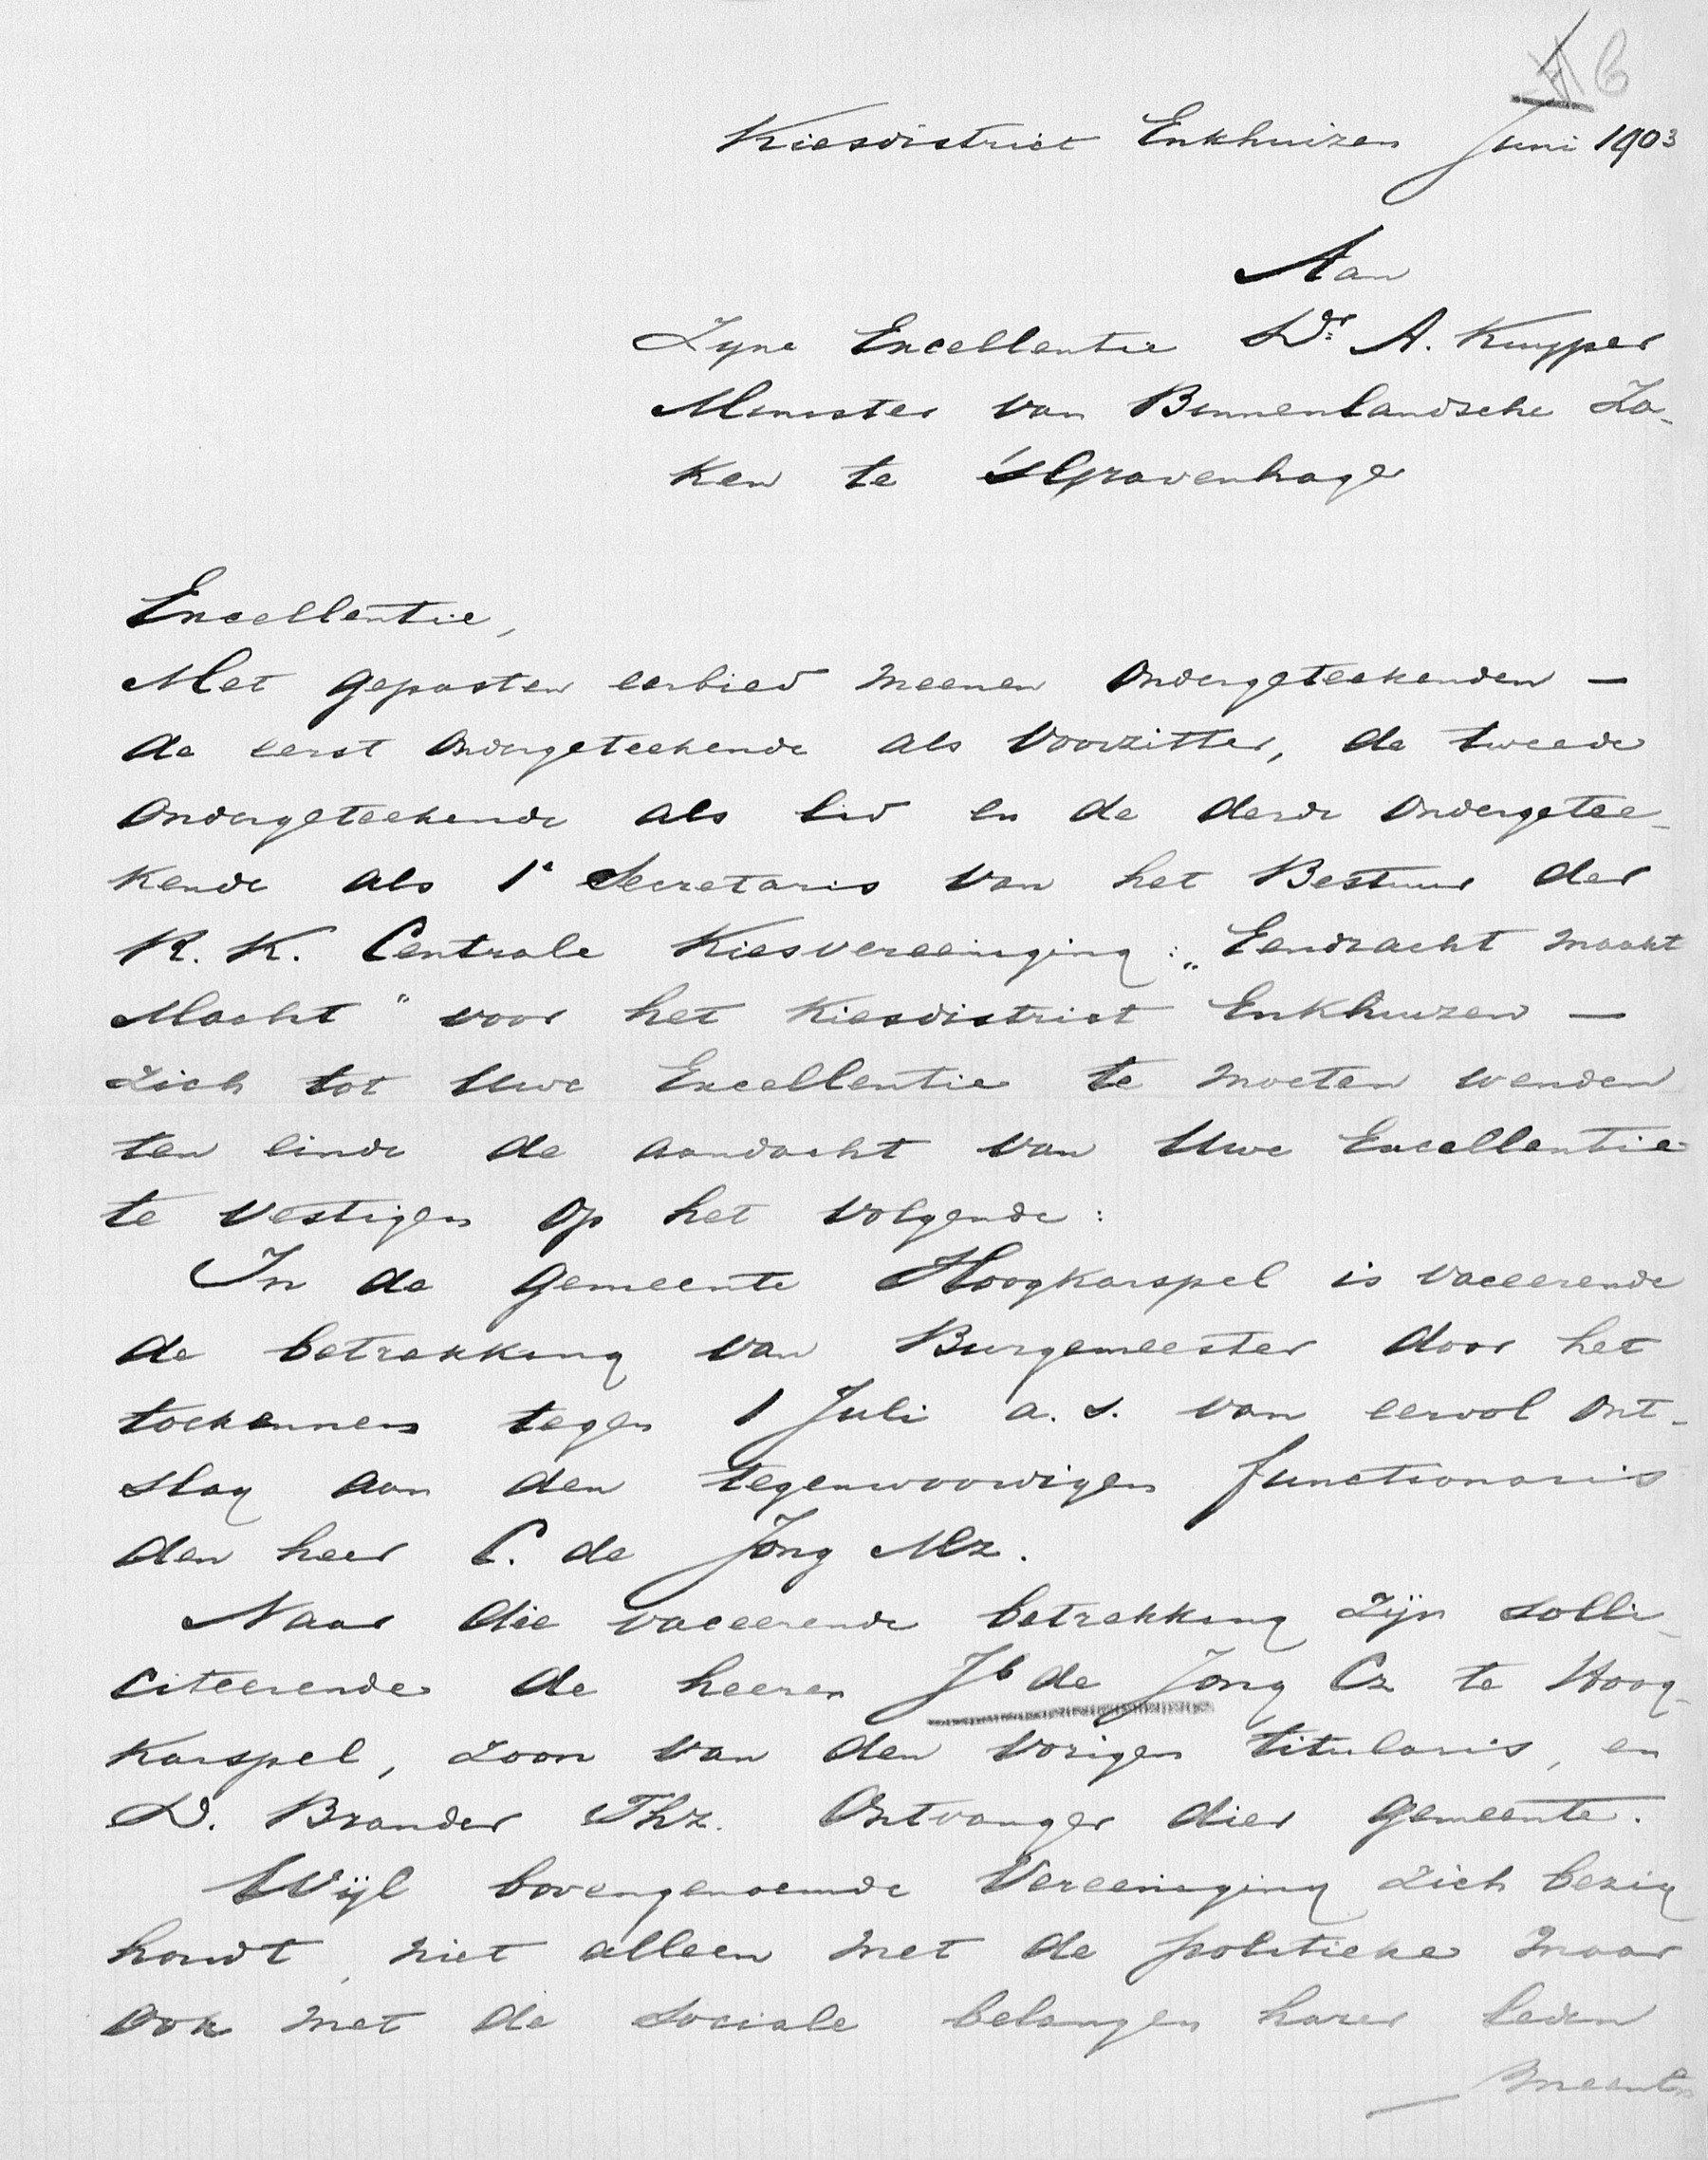 6
Kiesdistrict Enkhuizen Juni 1903
Aan
Zyne Excellentie Dr. A. Kuyper
Minister van Binnenlandsche Za-
ken te 's Gravenhage
Excellentie,
Met gepasten eerbied meenen ondergeteekenden —
de eerst ondergeteekende als Voorzitter, de tweede
ondergeteekende als lid en de derde ondergetee-
kende als 1e Secretaris van het Bestuur der
R. K. Centrale Kiesvereeniging: „Eendracht maakt
Macht" voor het Kiesdistrict Enkhuizen —
zich tot Uwe Excellentie te moeten wenden
ten einde de aandacht van Uwe Excellentie
te vestigen op het volgende:
In de gemeente Hoogkarspel is vaceerende
de betrekking van Burgemeester door het
toekennen tegen 1 Juli a. s. van eervol ont-
slag aan den tegenwoordigen functionaris
den heer C. de Jong Mz.
Naar die vaceerende betrekking zijn solli-
citeerende de heeren Jb de Jong Cz te Hoog-
karspel, zoon van den vorigen titularis, en
D. Brander Thz. Ontvanger dier gemeente.
Wijl bovengenoemde Vereeniging zich bezig
houdt, niet alleen met de politieke maar
ook met de sociale belangen harer leden